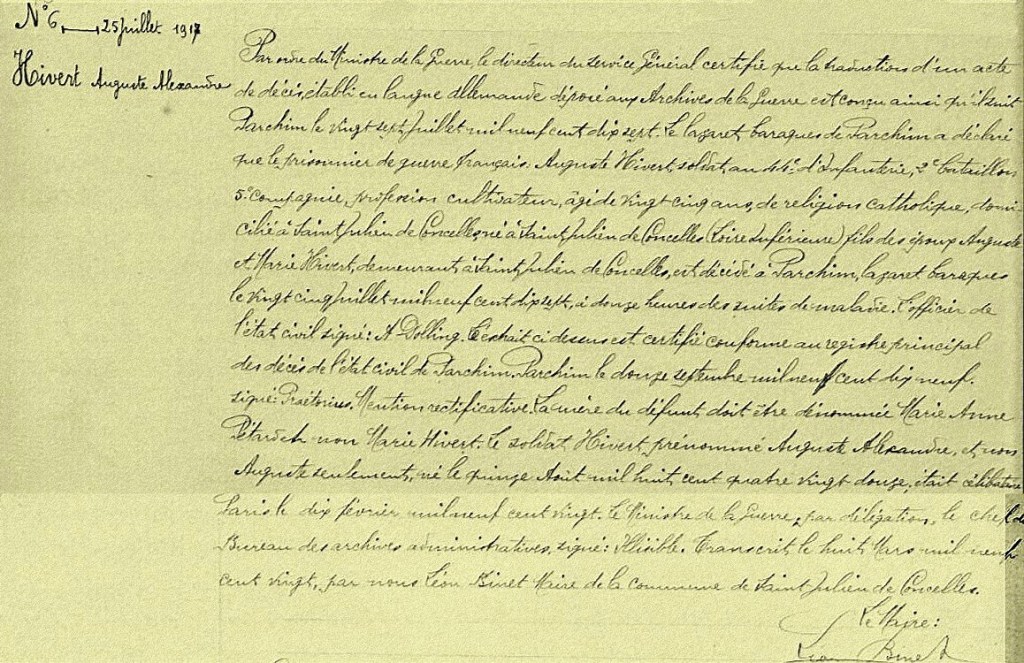 N° 6 25 juillet 1917
Hivert Auguste Alexandre
Par ordre du Ministre de la Guerre, le directeur du service Général certifie que la traduction d'un acte
de décès, établi en langue allemande déposé aux Archives de la Guerre est conçu ainsi qu'il suit
Parchim le vingt sept juillet mil neuf cent dix sept. Le lazaret baraques de Parchim a déclaré
que le prisonnier de guerre français. Auguste Hivert, soldat au 44e d'Infanterie, 2e bataillon
5e Compagnie, profession cultivateur, âgé de vingt cinq ans, de religion catholique, domi-
cilié à Saint Julien de Concelles, né à Saint Julien de Concelles (Loire Inférieure) fils des époux Auguste
et Marie Hivert, demeurant à Saint Julien de Concelles, est décédé à Parchim, lazaret baraques
le vingt cinq juillet mil neuf cent dix sept, à douze heures des suites de maladie. L'officier de
l'état civil signé: A. Dolling. L'extrait ci dessus est certifié conforme au registre principal
des décès de l'état civil de Parchim. Parchim le douze septembre mil neuf cent dix neuf.
signé: Praetorius. Mention rectificative. La mère du défunt doit être dénommée Marie Anne
Pétard et non Marie Hivert. Le soldat Hivert, prénommé Auguste Alexandre, et non
Auguste seulement, né le quinze Août mil huit cent quatre vingt douze, était célibataire
Paris le dix février mil neuf cent vingt. Le Ministre de la Guerre, par délégation, le chef de
Bureau des archives administratives, signé: Illisible. Transcrit le huit Mars mil neuf
cent vingt, par nous Léon Binet Maire de la commune de Saint Julien de Concelles.
Le Maire:
Léon Binet